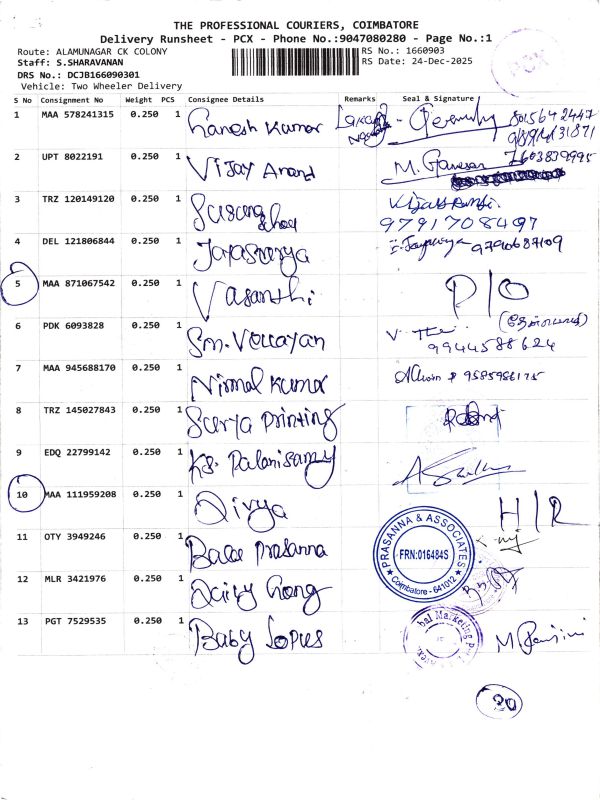 THE PROFESSIONAL COURIERS, COIMBATORE
Delivery Runsheet - PCX - Phone No.:9047080280 - Page No.:1
Route: ALAMUNAGAR CK COLONY
RS No.: 1660903
Staff: S.SHARAVANAN
RS Date: 24-Dec-2025
DRS No.: DCJB166090301
Vehicle: Two Wheeler Delivery
S No Consignment No Weight PCS Consignee Details Remarks Seal & Signature
1 MAA 578241315 0.250 1 Ganesh Kumar 8015642447
2 UPT 8022191 0.250 1 Vijay Anand M. Ganesan 7603839995
3 TRZ 120149120 0.250 1
9791708497
4 DEL 121806844 0.250 1 Jayasurya 9790687109
5 MAA 871067542 0.250 1 Vasanthi P/O
6 PDK 6093828 0.250 1 Sm. Vellayan
9944588624
7 MAA 945688170 0.250 1 Nirmal Kumar 9585986175
8 TRZ 145027843 0.250 1 Surya Printing
9 EDQ 22799142 0.250 1 KS. Palanisamy
10 MAA 111959208 0.250 1 Divya H/R
11 OTY 3949246 0.250 1 Bala Prasanna
PRASANNA & ASSOCIATES
FRN:016484S
Coimbatore - 641012
12 MLR 3421976 0.250 1
13 PGT 7529535 0.250 1 Baby Lopus
bal Marketing
M. Ranjini
20